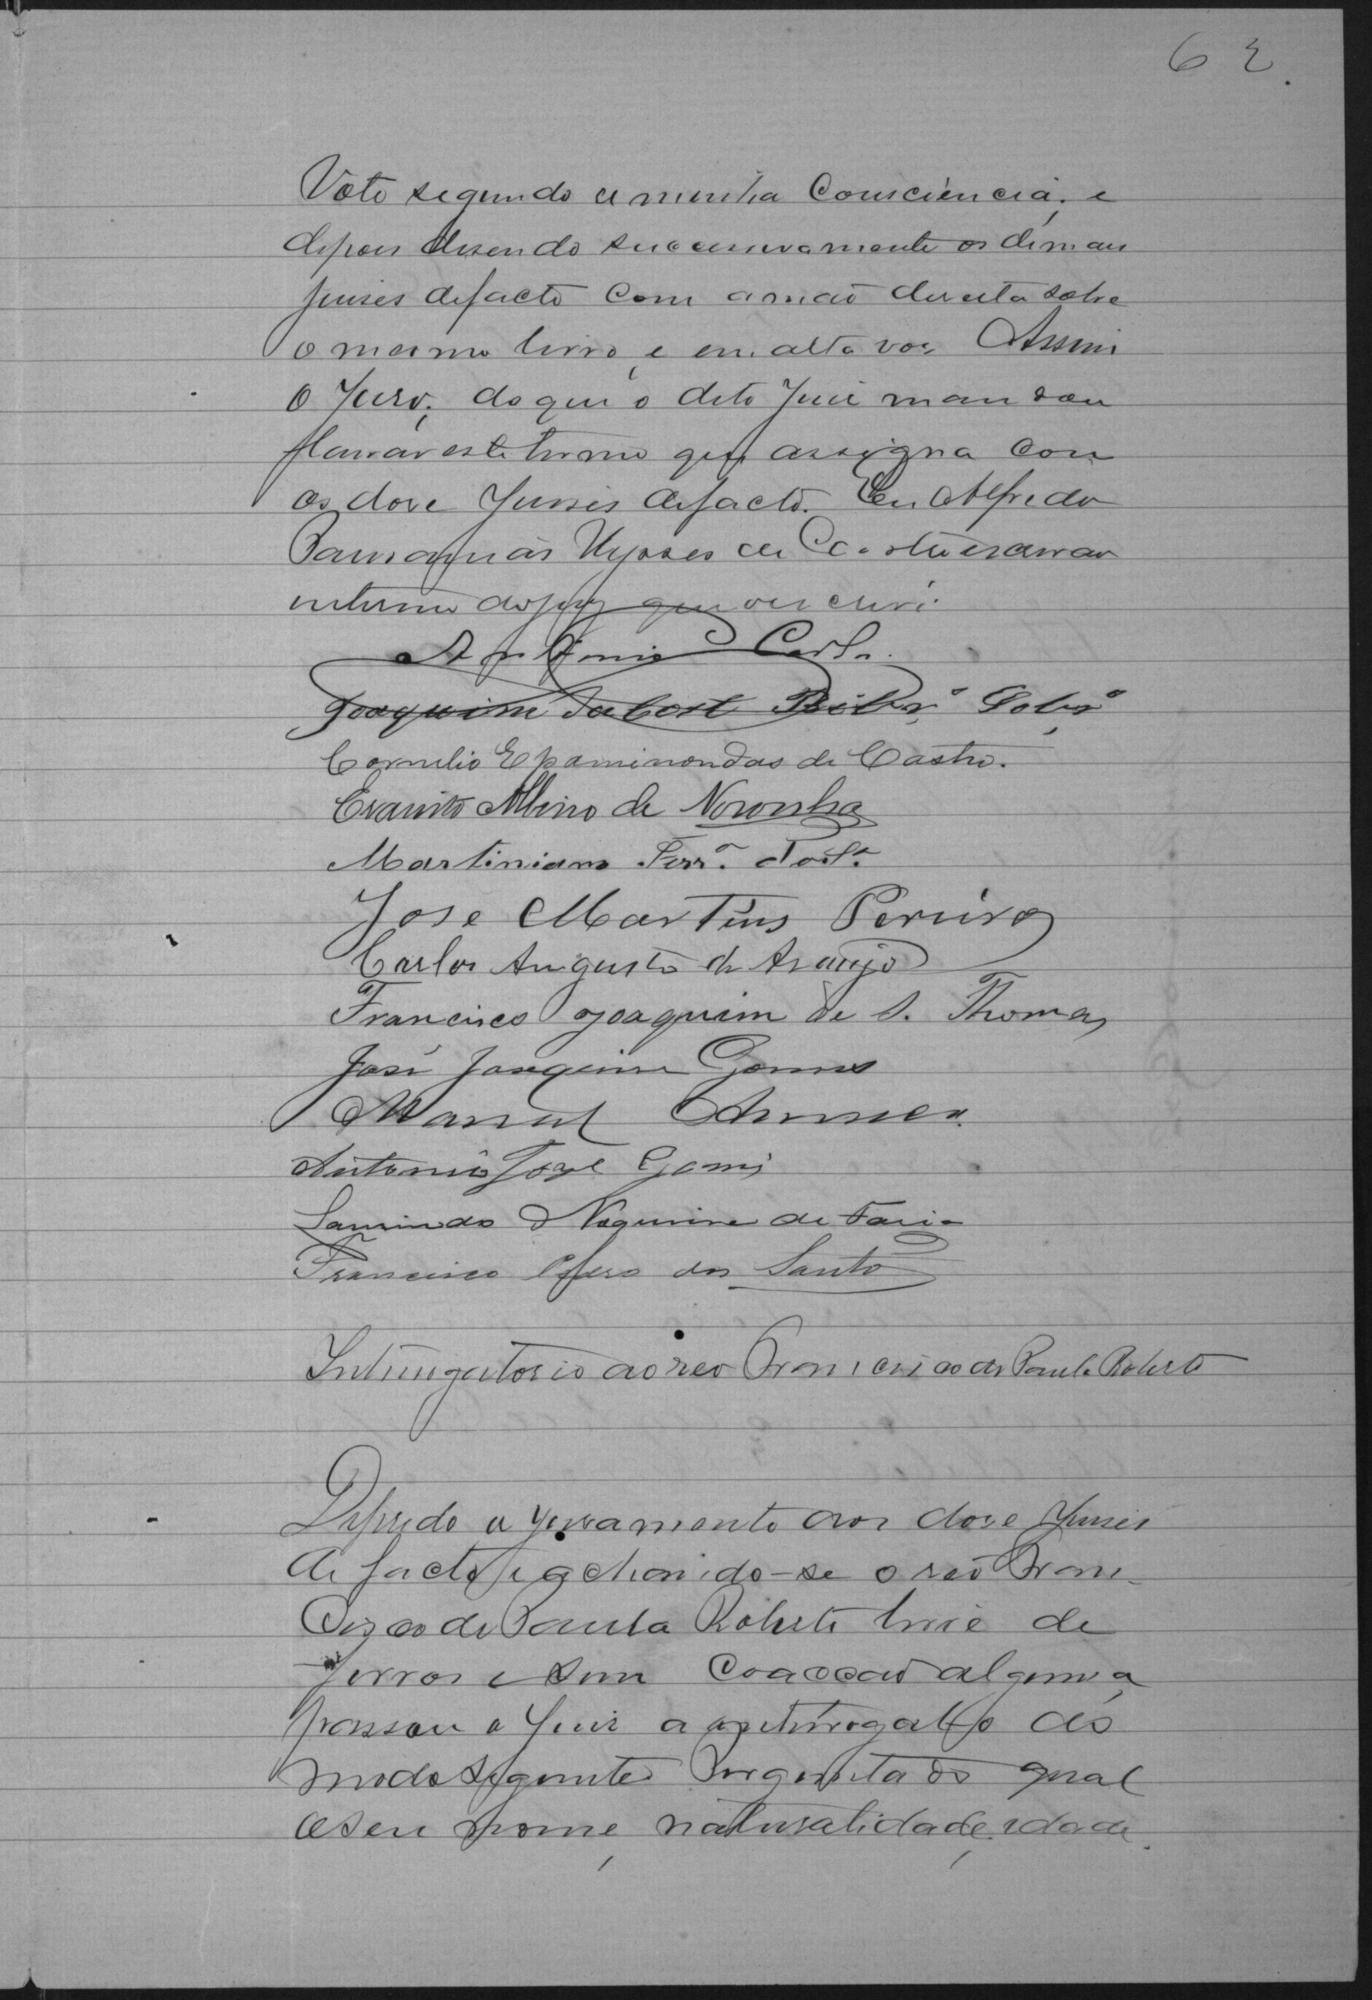 62.
Voto segundo a minha Consciencia; e
depois disendo successivamente os demais
juises de facto com a mão direita sobre
o mesmo livro, e em alta voz Assim
o Juro; do que o dito Juiz mandou
lavrar este termo que assigna com
os dose Juises de facto. Eu Alfredo
Ulysses de Castro escrivão
interino do jury que o escrevi.
Antonio
Joaquim Ribrº Sobrº
Cornelio Epaminondas de Castro.
Evaristo Albino de Noronha
Martiniano Ferrª
Jose Martins Pereira
Carlos Augusto de Araujo
Francisco Joaquim de S. Thomas
José Joaquim Gomes
Manoel
Antonio José Gomes
Laurindo Nogueira de Faria
Francisco dos Santos
Interrogatorio ao reo Francisco de Paula Roberto
Deferido o juramento aos dose Juises
de facto, e achando-se o reo Fran-
cisco de Paula Roberto livre de
ferros e sem coacção alguma
passou o Juiz a interrogal-o do
modo seguinte Perguntado qual
o seu nome, naturalidade, idade,